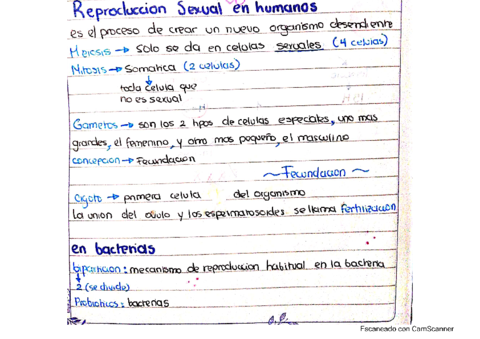 Reproduccion Sexual en humanos
es el proceso de crear un nuevo organismo desendiente
Meiosis → Solo se da en celulas sexuales (4 celulas)
Mitosis → Somatica (2 celulas)
toda celula que
no es sexual
Gametos → son los 2 tipos de celulas especiales, uno mas
grandes, el femenino, y otro mas pequeño, el masculino
concepcion → Fecundacion
~ Fecundacion ~
Cigoto → primera celula del organismo
la union del ovulo y los espermatosoides se llama fertilizacion
en bacterias
biparticion: mecanismo de reproduccion habitual en la bacteria
2 (se divide)
Probioticos: bacterias
Escaneado con CamScanner